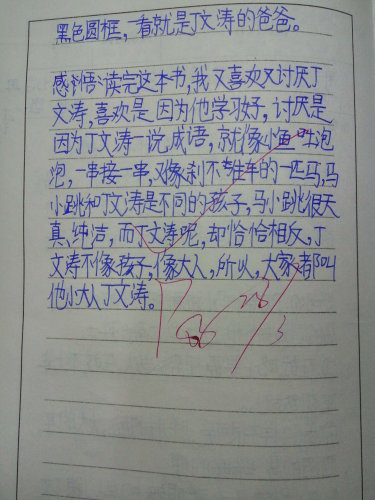 黑色圆框，一看就是丁文涛的爸爸。
感悟：读完这本书，我又喜欢又讨厌丁
文涛，喜欢是因为他学习好，讨厌是
因为丁文涛一说成语，就像小鱼吐泡
泡，一串接一串，又像刹不住车的一匹马，马
小跳和丁文涛是不同的孩子，马小跳很天
真、纯洁，而丁文涛呢，却恰恰相反，丁
文涛不像孩子，像大人，所以，大家都叫
他小大人丁文涛。